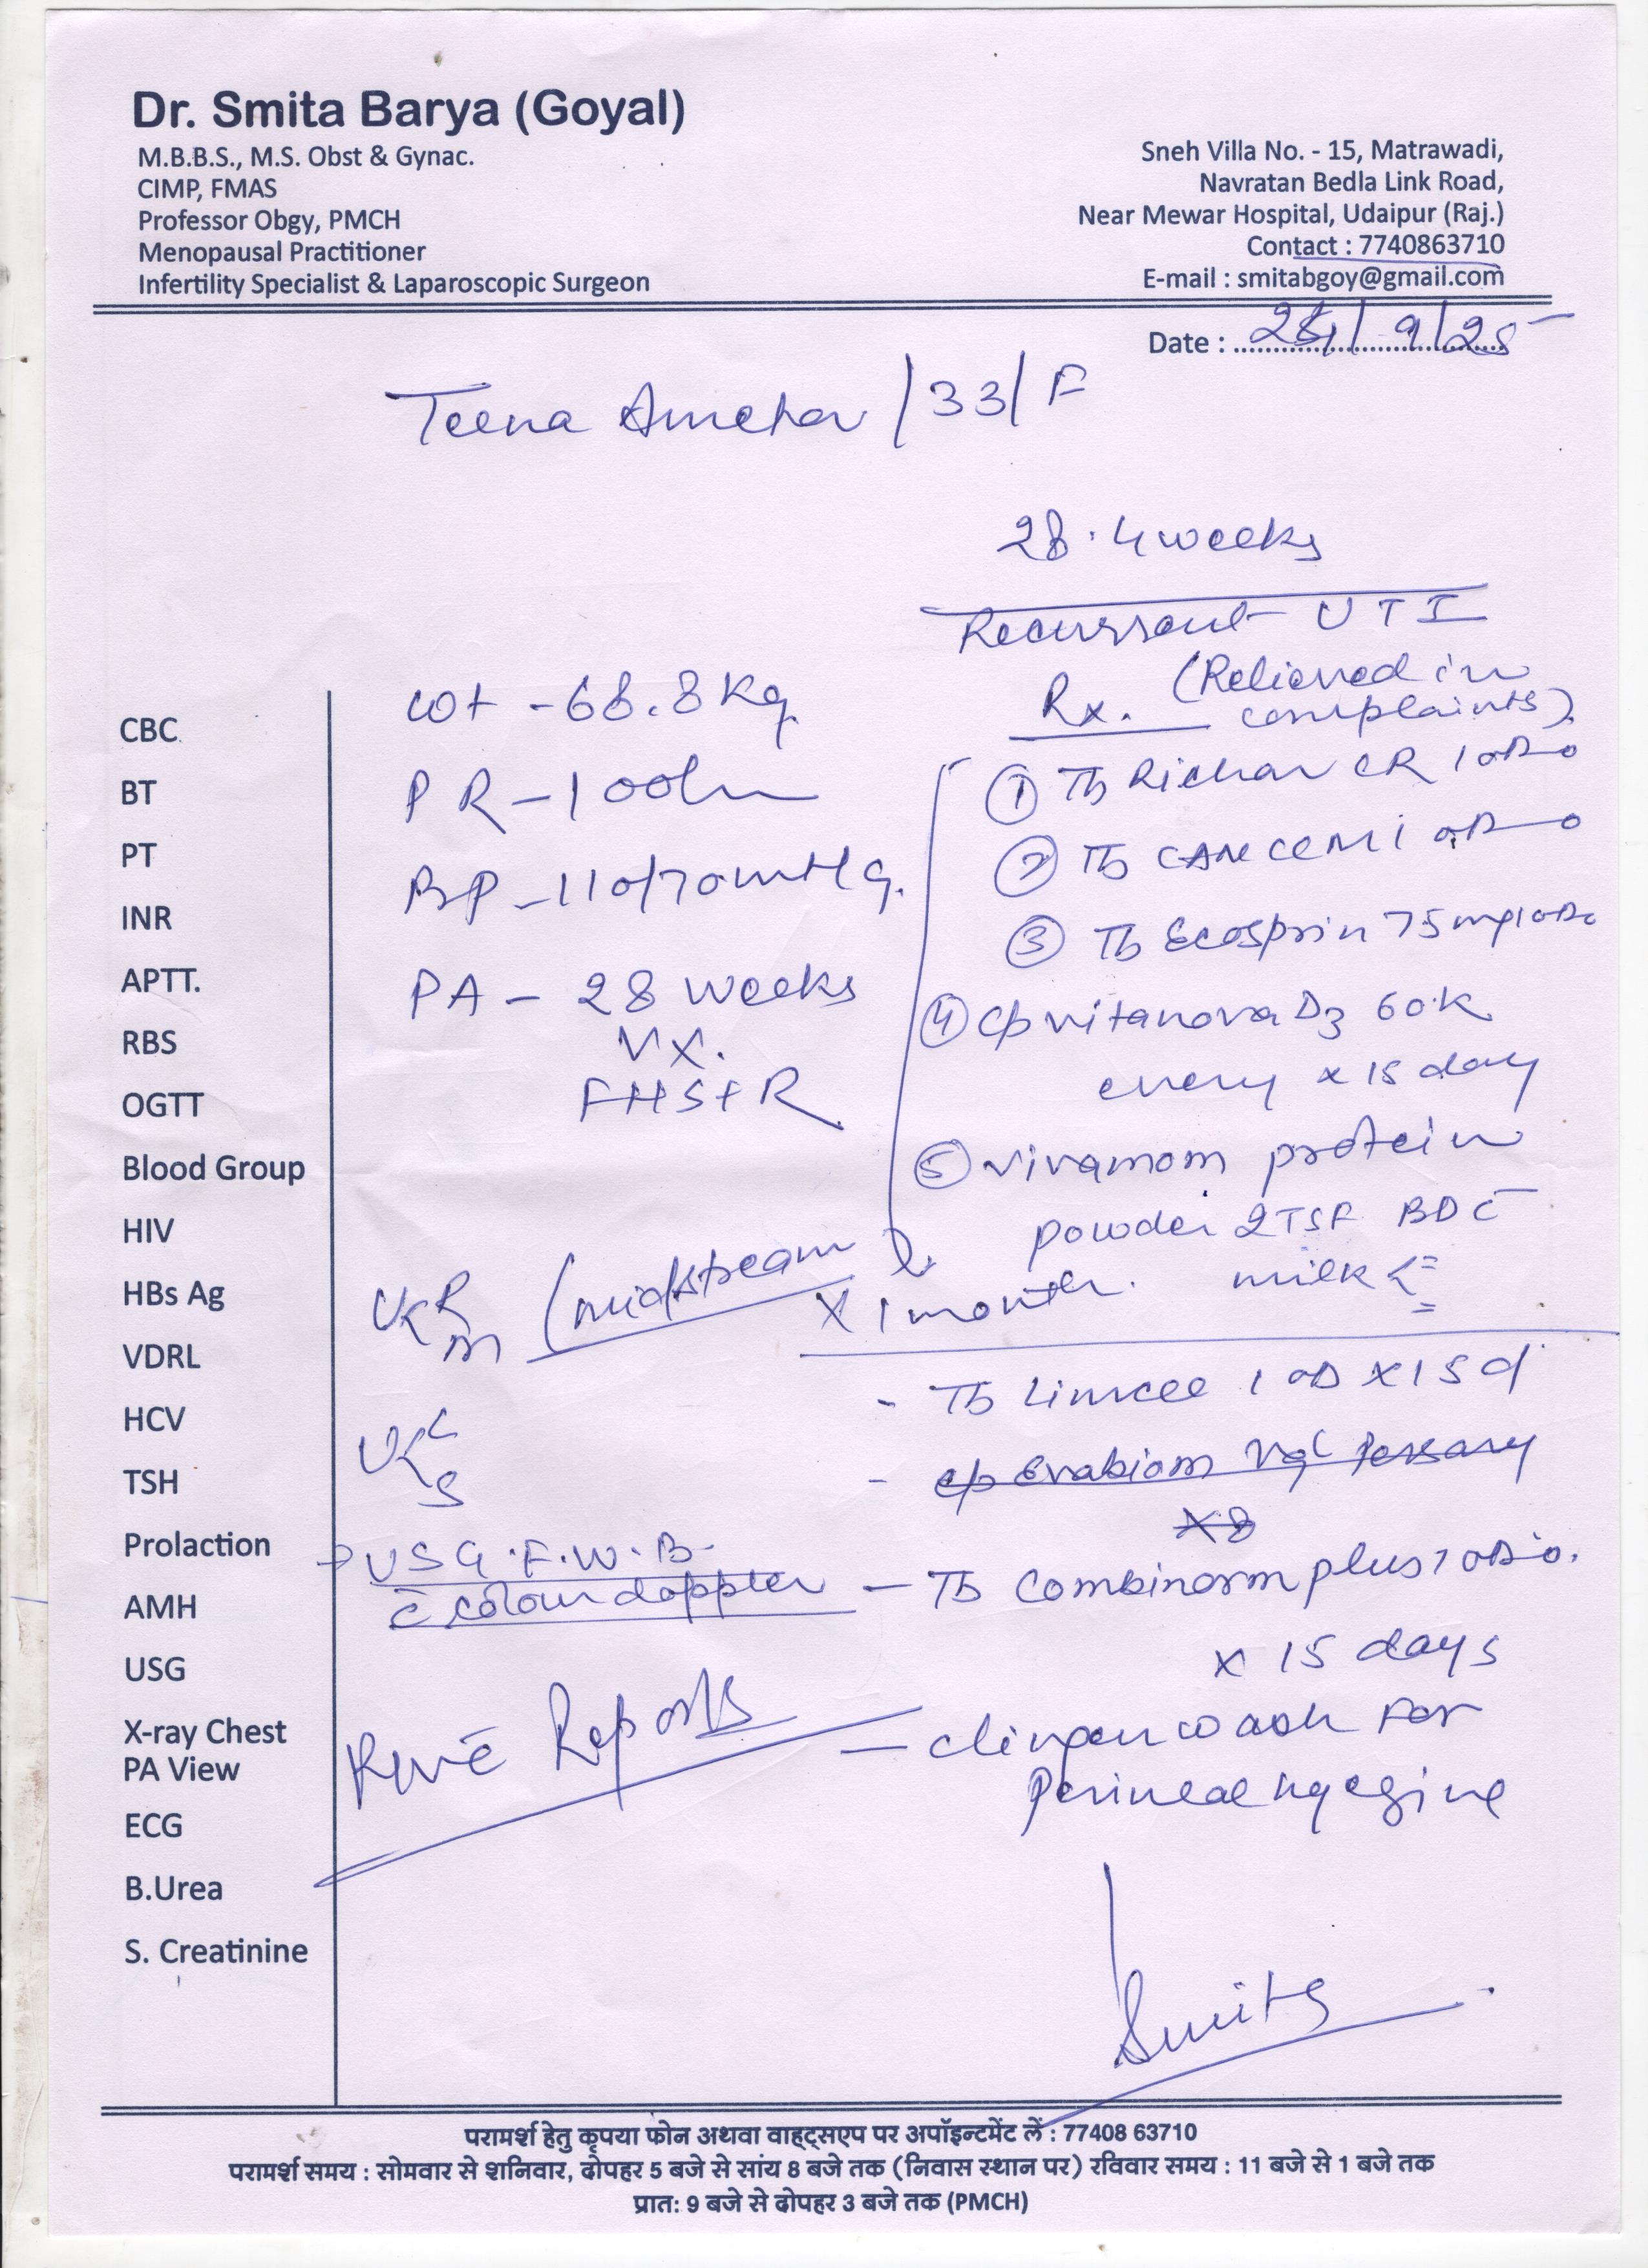 Dr. Smita Barya (Goyal)
M.B.B.S., M.S. Obst & Gynac.
CIMP, FMAS
Professor Obgy, PMCH
Menopausal Practitioner
Infertility Specialist & Laparoscopic Surgeon
Sneh Villa No. - 15, Matrawadi,
Navratan Bedla Link Road,
Near Mewar Hospital, Udaipur (Raj.)
Contact : 7740863710
E-mail : smitabgoy@gmail.com
Date : /9/25
Teena /33/F
28.4 weeks
Recurrent UTI
Rx. (Relieved in
complaints)
CBC
BT
PT
INR
APTT.
RBS
OGTT
Blood Group
HIV
HBs Ag
VDRL
HCV
TSH
Prolaction
AMH
USG
X-ray Chest
PA View
ECG
B.Urea
S. Creatinine
wt - 68.8 Kg
PR - 100/m
BP - 110/70 mmHg.
PA - 28 weeks
VX.
FHS+R
U R
M (midstream
U C
S
→ USG.F.W.B.
c̄ colour doppler
R/w c̄ Reports
① Tb CR 1 OD
② Tb 1 OD
③ Tb Ecosprin 75 mg 1 OD
④ Cp vitanova D3 60K
every x 15 day
⑤ vivamom protein
powder 2TSF BD c̄
milk
X 1 month.
- Tb Limcee 1 OD x 15 d
- cp Evabiom Vgl Pessary
x8
- Tb Combinorm plus 1 OD
x 15 days
- wash For
Perineal hygeine
Smita
परामर्श हेतु कृपया फोन अथवा वाह्ट्सएप पर अपॉइन्टमेंट लें : 77408 63710
परामर्श समय : सोमवार से शनिवार, दोपहर 5 बजे से सांय 8 बजे तक (निवास स्थान पर) रविवार समय : 11 बजे से 1 बजे तक
प्रातः 9 बजे से दोपहर 3 बजे तक (PMCH)